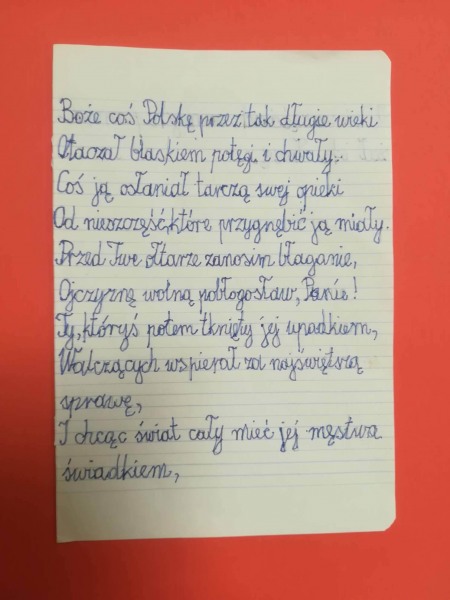 Boże coś Polskę przez tak długie wieki
Otaczał blaskiem potęgi i chwały.
Coś ją osłaniał tarczą swej opieki
Od nieszczęść, które przygnębić ją miały.
Przed Twe ołtarze zanosim błaganie,
Ojczyznę wolną pobłogosław, Panie!
Ty, któryś potem tknięty jej upadkiem,
Walczących wspierał za najświętszą
sprawę,
I chcąc świat cały mieć jej męstwa
świadkiem,